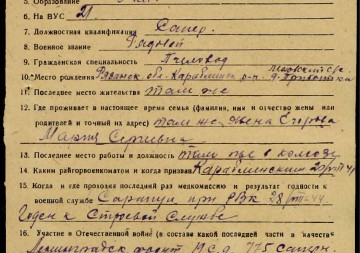 5. Образование
6. На ВУС 21
7. Должностная квалификация Сапер
8. Военное звание Рядовой
9. Гражданская специальность Пчеловод
10. Место рождения Рязанск. обл. Караблинск. р-н. д.
11. Последнее место жительства там же
12. Где проживает в настоящее время семья (фамилия, имя и отчество жены или
родителей и точный их адрес) там же Жена Егорова
Мария Сергеевна
13. Последнее место работы и должность там же в колхозе
14. Каким райгорвоенкоматом и когда призван Караблинским
15. Когда и где проходил последний раз медкомиссию и результат годности к
военной службе Сарапул при РВК 28/VIII-44
Годен к Строевой Службе
16. Участие в Отечественной войне (в составе какой последней части и в качестве
Ленинградск фронт 19 С.д. 775 саперн.